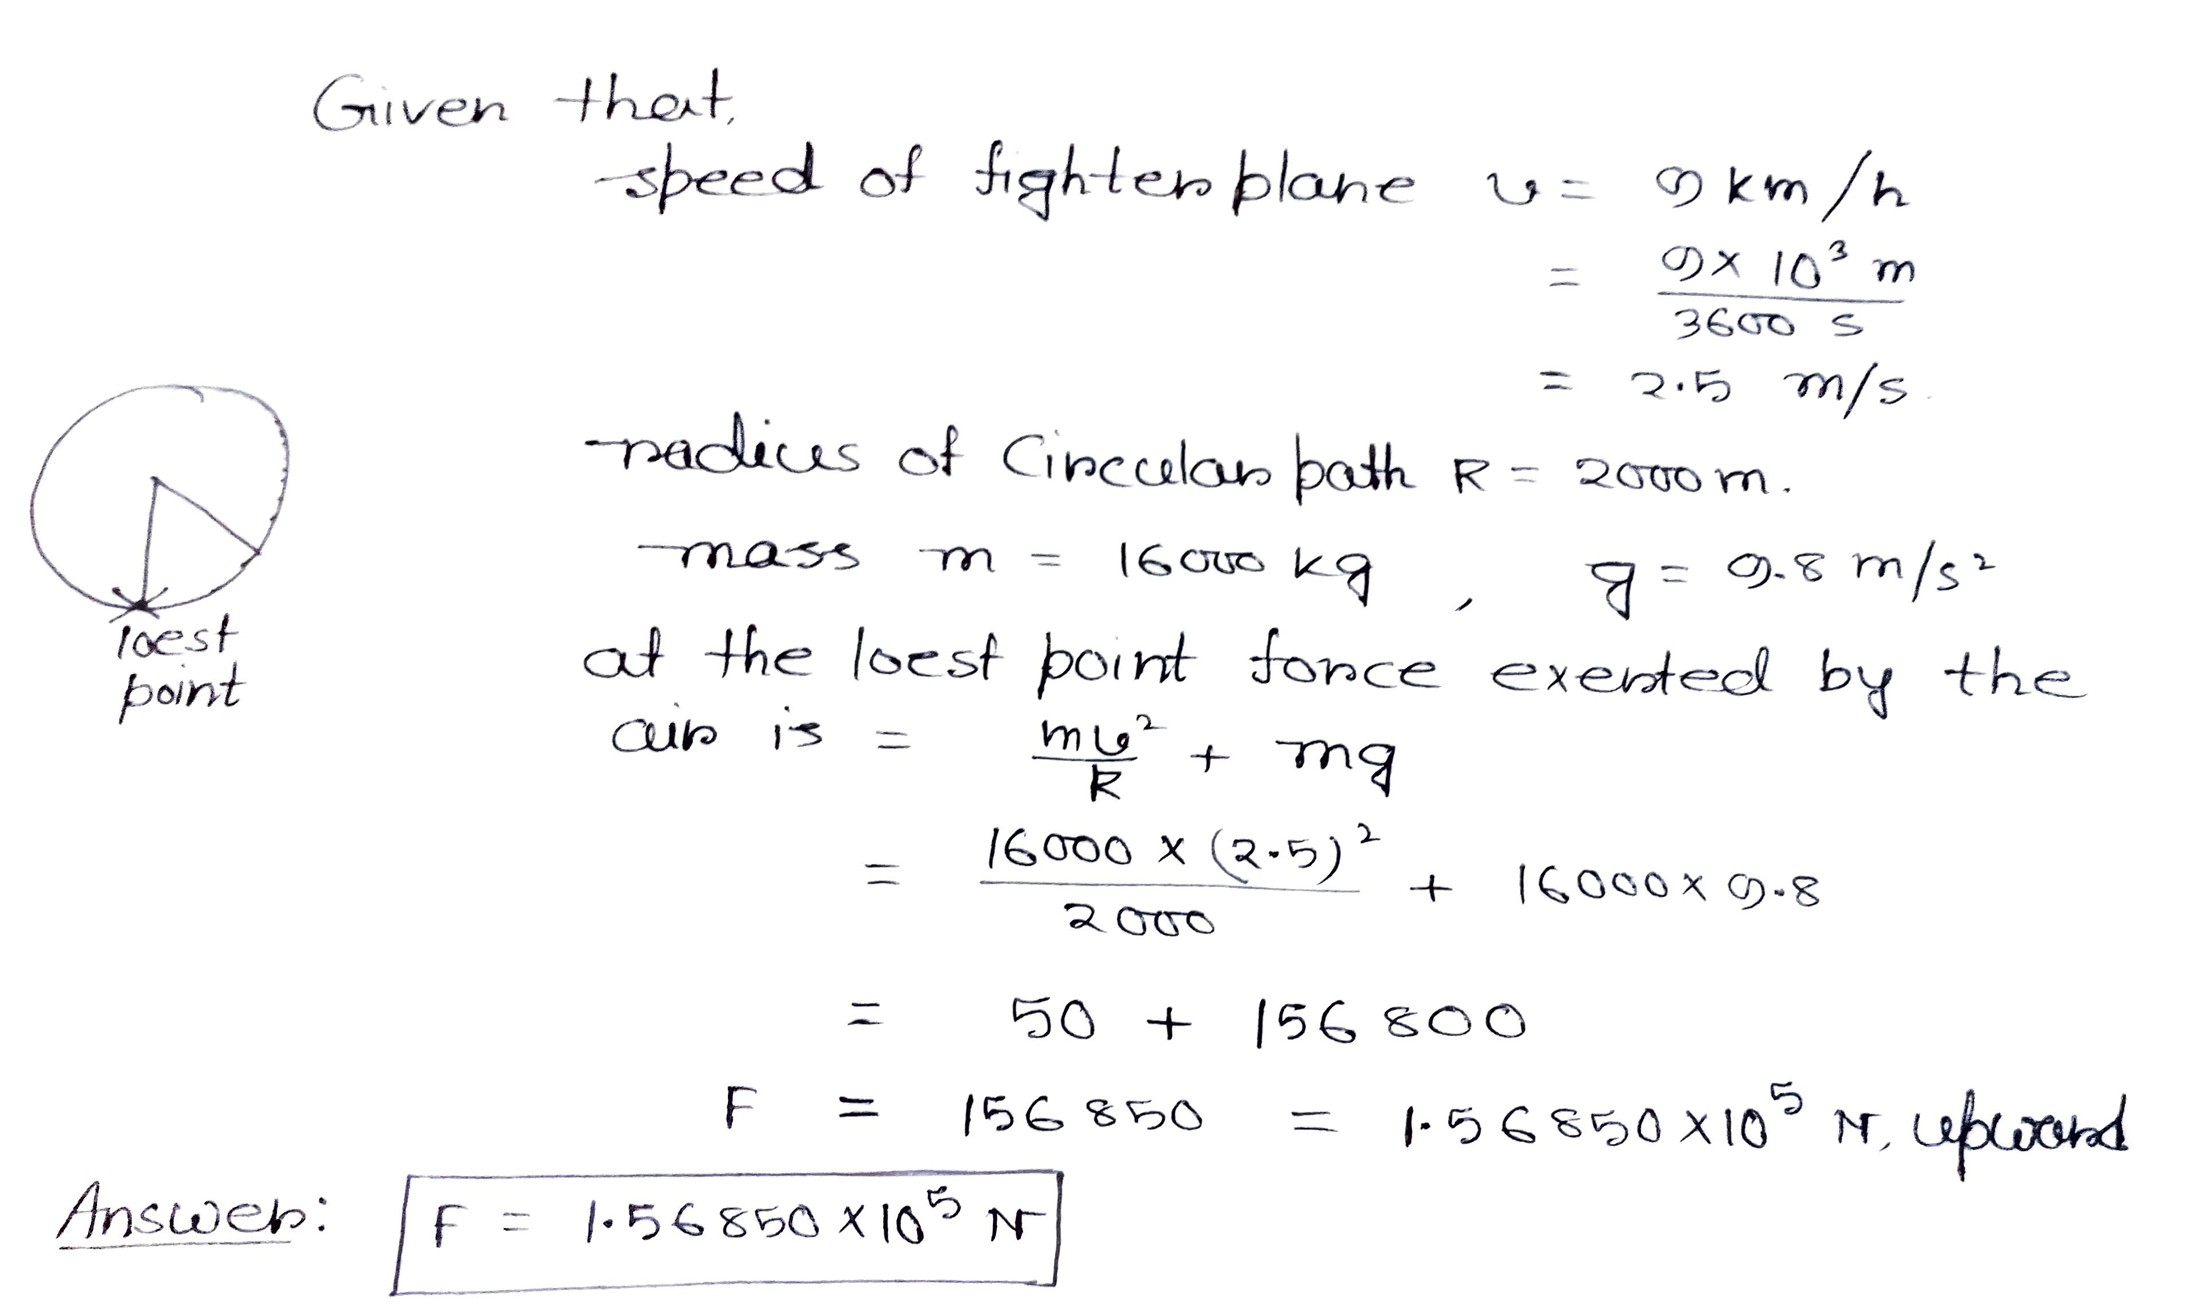 Given that,
speed of fighter plane v = 9 km/h
= 9 x 10³ m / 3600 s
= 2.5 m/s.
radius of Circular path R = 2000 m.
mass m = 16000 kg , g = 9.8 m/s²
loest
point
at the loest point force exerted by the
air is = mv²/R + mg
= 16000 x (2.5)² / 2000 + 16000 x 9.8
= 50 + 156800
F = 156850 = 1.56850 x 10⁵ N, upward
Answer: F = 1.56850 x 10⁵ N